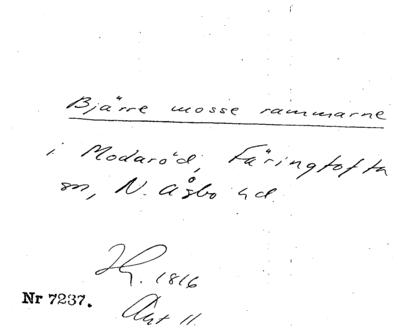 Bjärre mosse rammarne
i Modaröd, Färingtofta
sn, N. Åsbo hd.
1816
Nr 7237.
Akt 11.